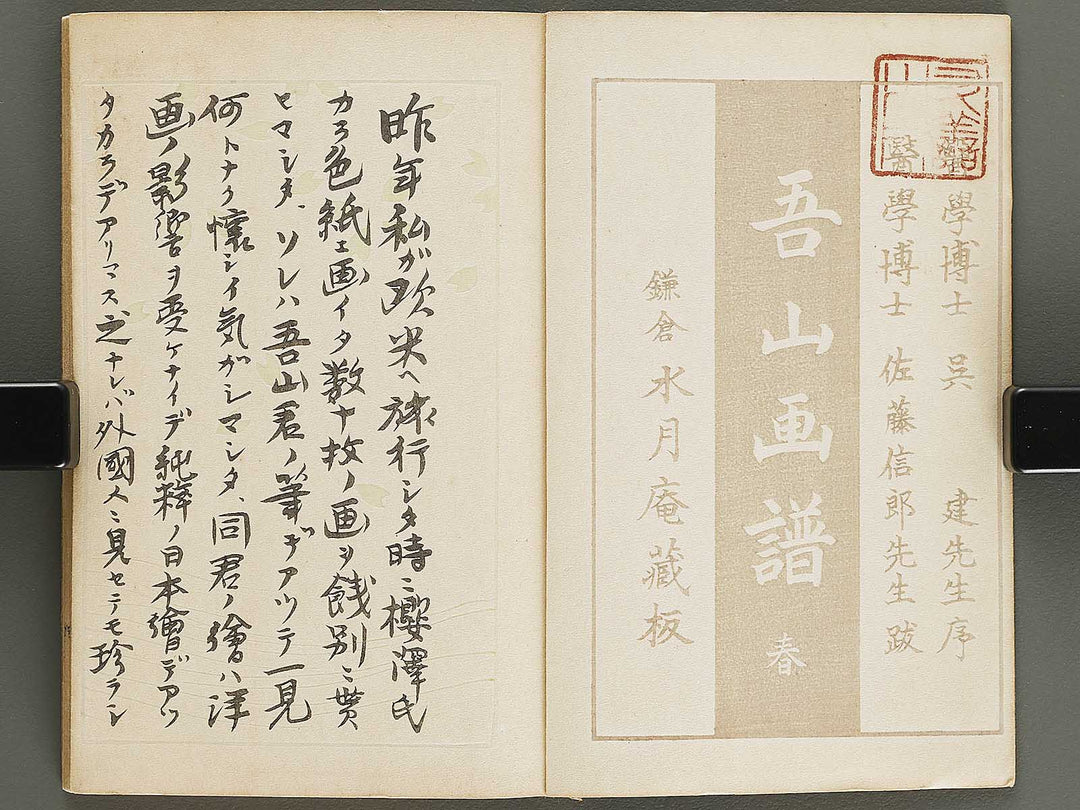 醫學博士 呉 建先生序
醫學博士 佐藤信郎先生跋
吾山画譜 春
鎌倉 水月庵藏板
昨年私ガ欧米ヘ旅行シタ時ニ櫻澤氏
カラ色紙ニ画イタ数十枚ノ画ヲ餞別ニ貰
ヒマシタ、ソレハ吾山君ノ筆デアツテ一見
何トナク懐シイ気ガシマシタ、同君ノ繪ハ洋
画ノ影響ヲ受ケナイデ純粋ノ日本繪デアツ
タカラデアリマス之ナレバ外國人ニ見セテモ珍ラシ